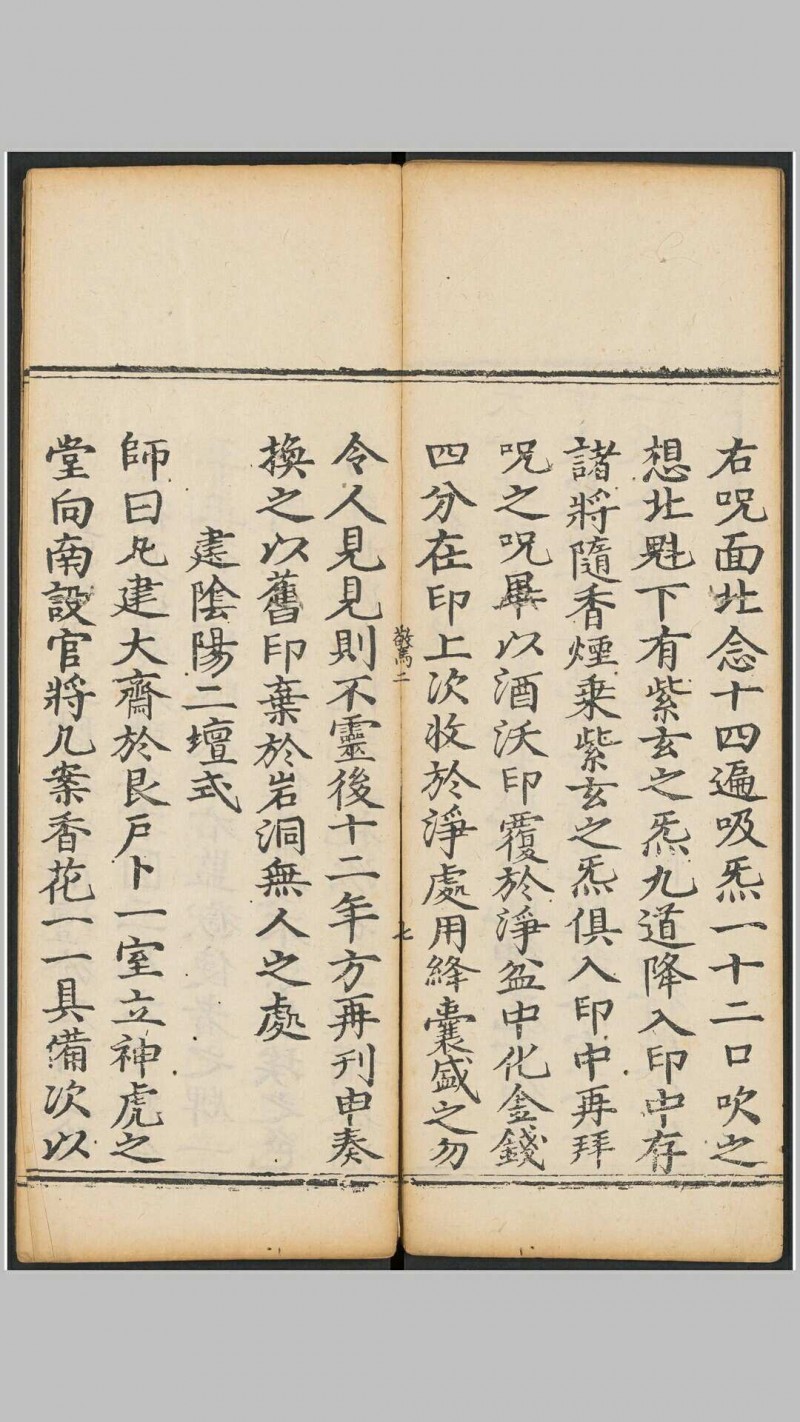 右呪面北念十四遍吸炁一十二口吹之
想北魁下有紫玄之炁九道降入印中存
諸將隨香煙乗紫玄之炁俱入印中再拜
呪之呪畢以酒沃印覆於淨盆中化金錢
四分在印上次收於淨處用絳囊盛之勿
驚二
七
令人見見則不靈後十二年方再刊申奏
換之以舊印棄於岩洞無人之處
建隂陽二壇式
師曰凡建大齋於艮戶卜一室立神虎之
堂向南設官將几案香花一一具備次以